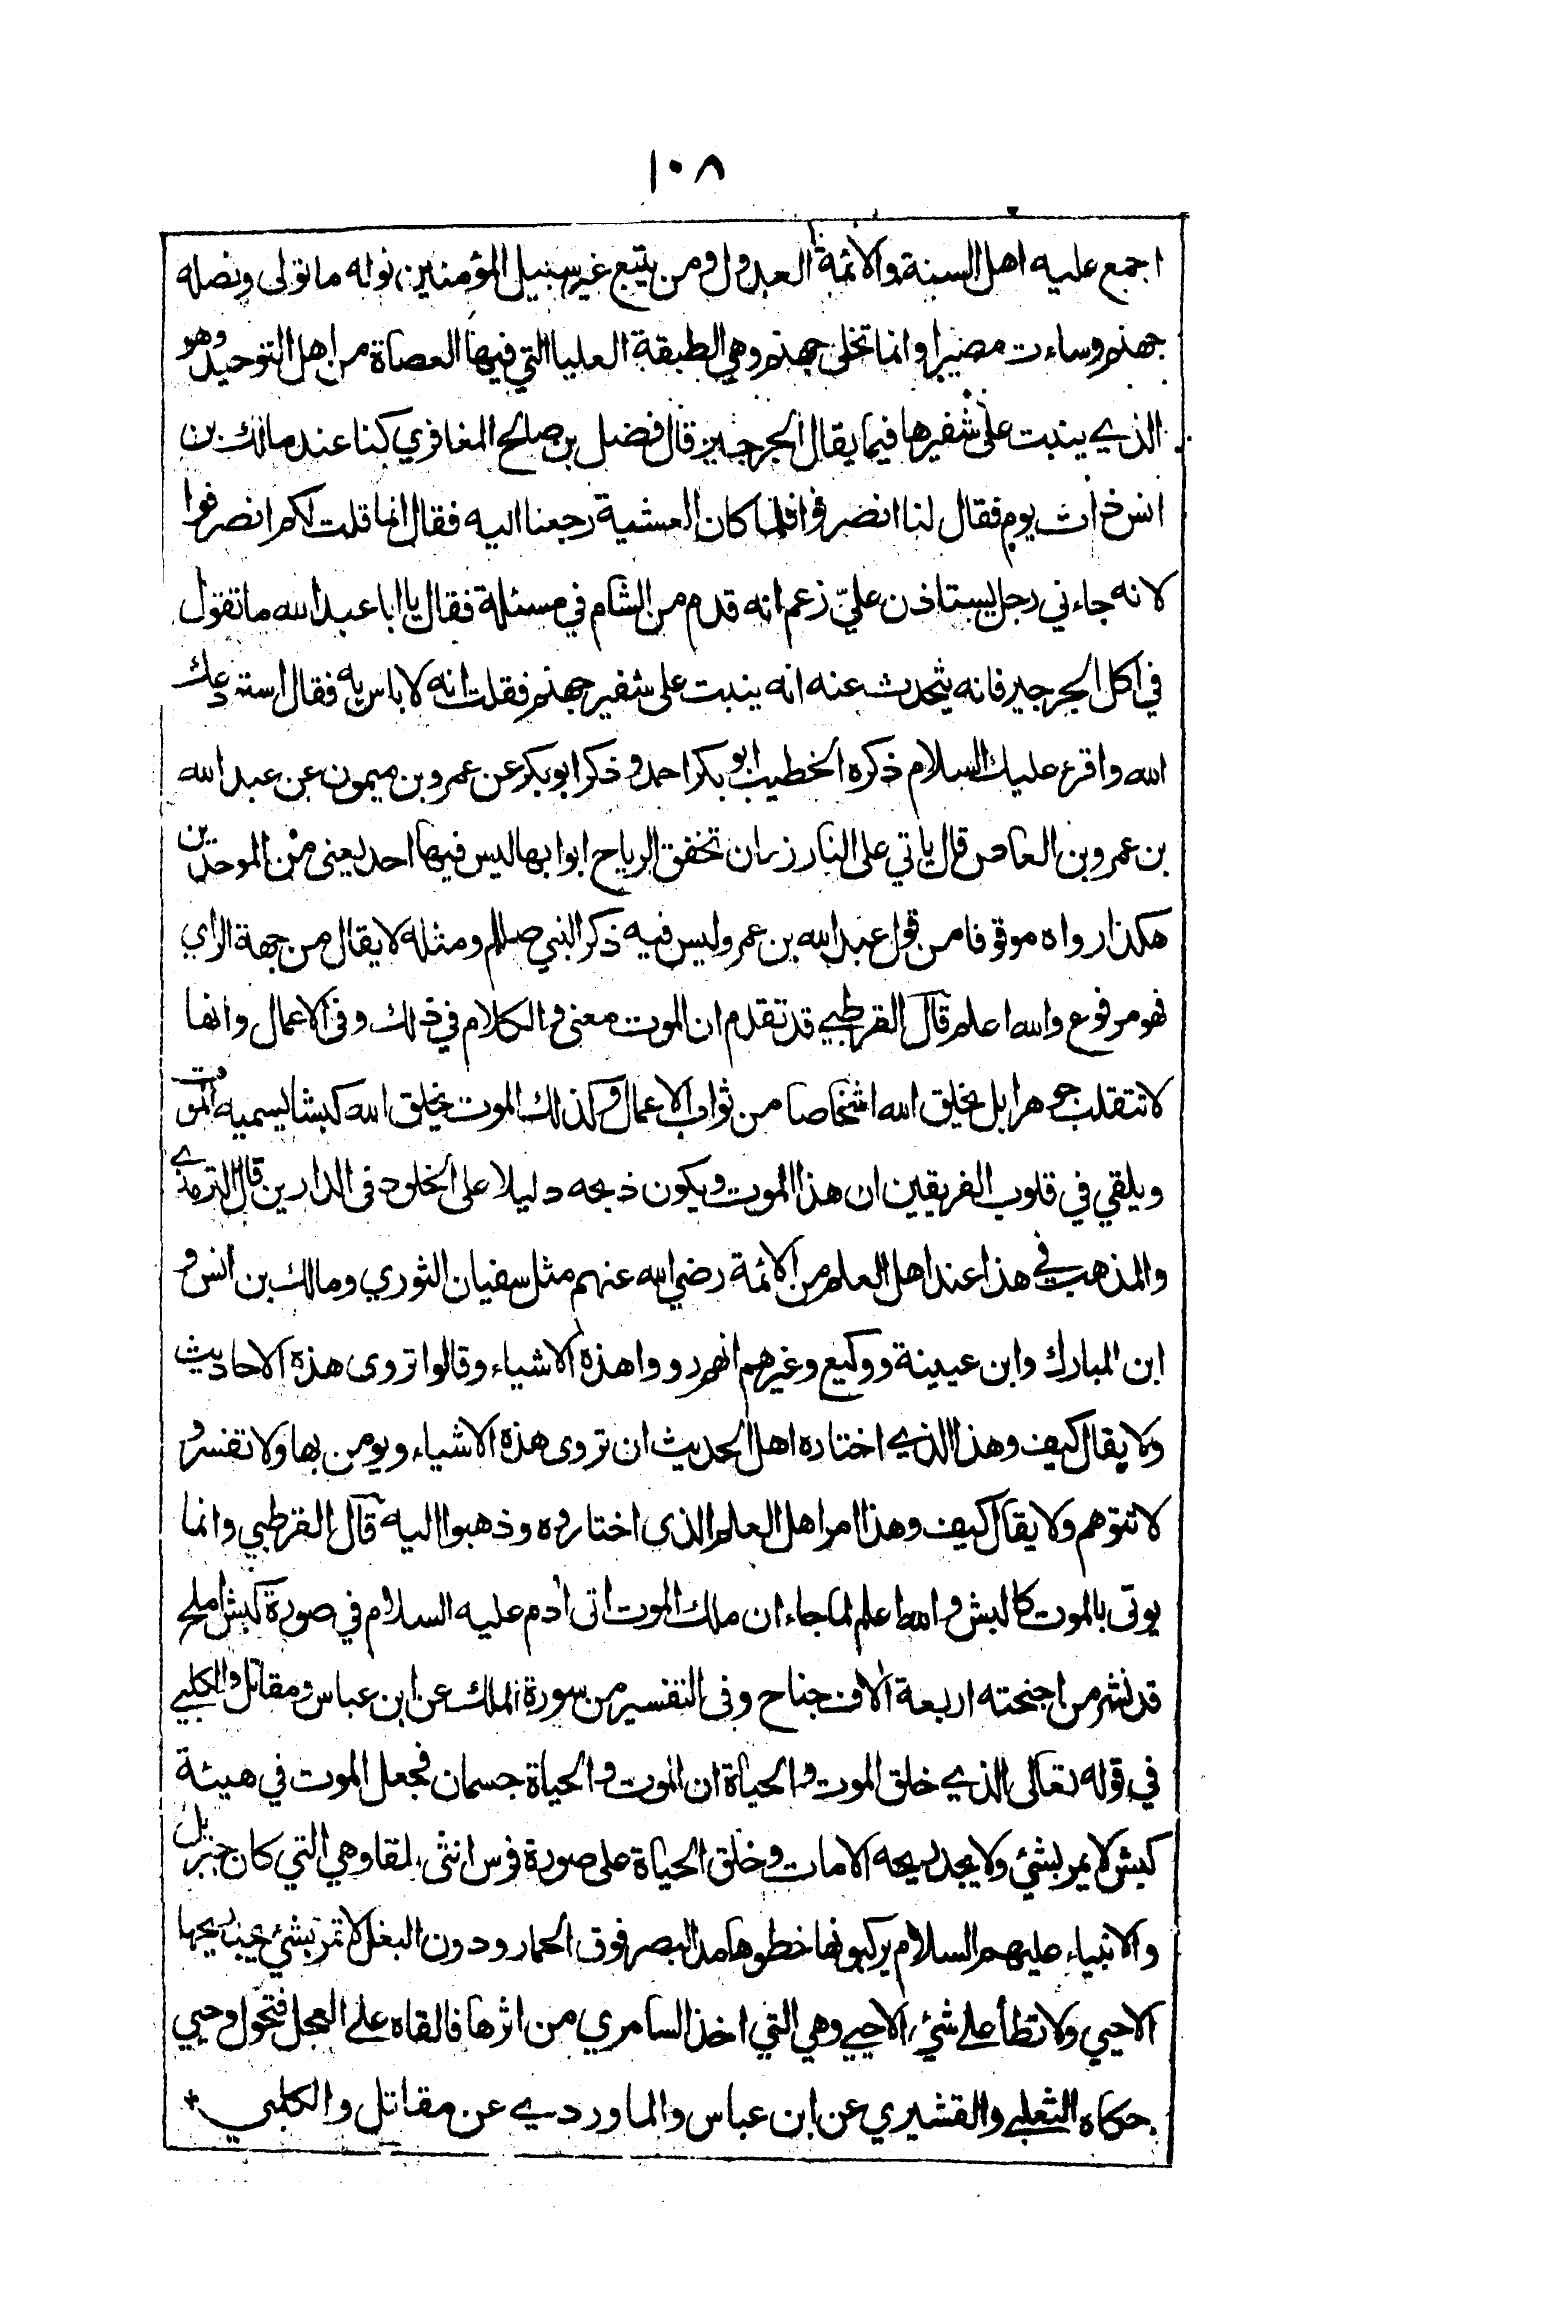 ١٠٨
اجمع عليه اهل السنة والائمة العدول ومن يتبع غير سبيل المؤمنين نوله ما تولى ونصله
جهنم وساءت مصيرا وانما تخلى جهنم وهي الطبقة العليا التي فيها العصاة من اهل التوحيد وهو
الذي ينبت على شفيرها فيما يقال الجرجير قال فضل بن صالح المغافري كنا عند مالك بن
انس ذات يوم فقال لنا انصرفوا فلما كان العشية رجعنا اليه فقال انما قلت لكم انصرفوا
لانه جاءني رجل يستاذن عليّ زعم انه قدم من الشام في مسئلة فقال يا ابا عبد الله ما تقول
في اكل الجرجير فانه يتحدث عنه انه ينبت على شفير جهنم فقلت انه لا باس به فقال استودعك
الله واقرء عليك السلام ذكره الخطيب ابو بكر احمد وذكر ابو بكر عن عمرو بن ميمون عن عبد الله
بن عمرو بن العاص قال ياتي على النار زمان تخفق الرياح ابوابها ليس فيها احد يعنى من الموحدين
هكذا رواه موقوفا من قول عبد الله بن عمرو ليس فيه ذكر النبي صللم ومثله لا يقال من جهة الراي
فهو مرفوع والله اعلم قال القرطبي قد تقدم ان الموت معنى والكلام في ذلك وفي الاعمال وانها
لا تنقلب جوهرا بل يخلق الله اشخاصا من ثواب الاعمال وكذلك الموت يخلق الله كبشا يسميه الموت
ويلقي في قلوب الفريقين ان هذا الموت ويكون ذبحه دليلا على الخلود في الدارين قال الترمذي
والمذهب في هذا عند اهل العلم من الائمة رضي الله عنهم مثل سفيان الثوري ومالك بن انس و
ابن المبارك وابن عيينة ووكيع وغيرهم انهم رووا هذه الاشياء وقالوا تروى هذه الاحاديث
ولا يقال كيف وهذا الذي اختاره اهل الحديث ان تروى هذه الاشياء ويومن بها ولا تفسر و
لا تتوهم ولا يقال كيف وهذا امر اهل العلم الذى اختاروه وذهبوا اليه قال القرطبي وانما
يوتى بالموت كالبش والله اعلم لما جاء ان ملك الموت اتى ادم عليه السلام في صورة كبش املح
قد نشر من اجنحته اربعة الاف جناح وفى التفسير من سورة الملك عن ابن عباس ومقاتل والكلبي
في قوله تعالى الذي خلق الموت والحياة ان الموت والحياة جسمان فجعل الموت في هيئة
كبش لا يمر بشئ ولا يجد ريحه الا مات وخلق الحياة على صورة فرس انثى بلقا وهي التي كان جبريل
والانبياء عليهم السلام يركبونها خطوها مد البصر فوق الحمار ودون البغل لا تمر بشئ يجد ريحها
الا حيي ولا تطأ على شئ الا حيي وهي التي اخذ السامري من اثرها فالقاه على العجل فتحول وحيي
حكاه الثعلبي والقشيري عن ابن عباس والماوردي عن مقاتل والكلبي *